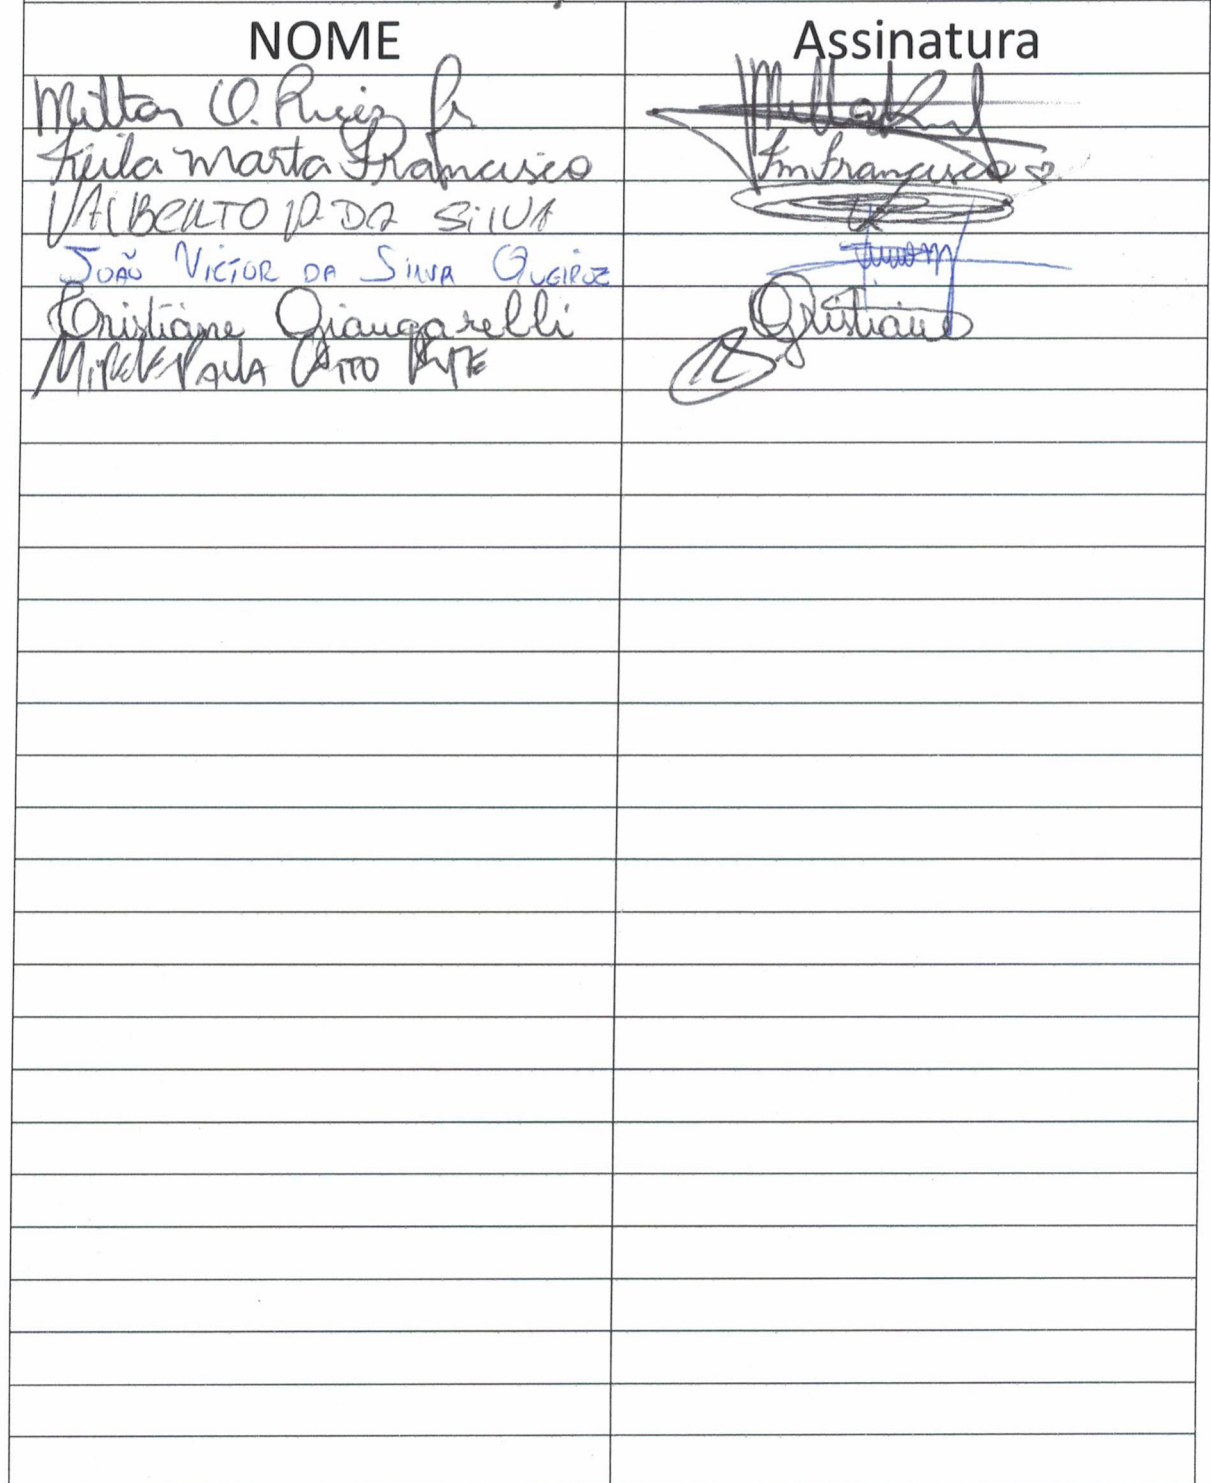 NOME Assinatura
Milton O. Ruiz Jr
Keila Marta Francisco Fm Francisco
VALBERTO P DA SILVA
JOÃO VICTOR DA SILVA QUEIROZ
Cristiane Giangarelli Cristiane
PAULA